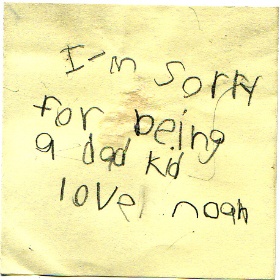 I'm sorry
for being
a dad kid
love noah